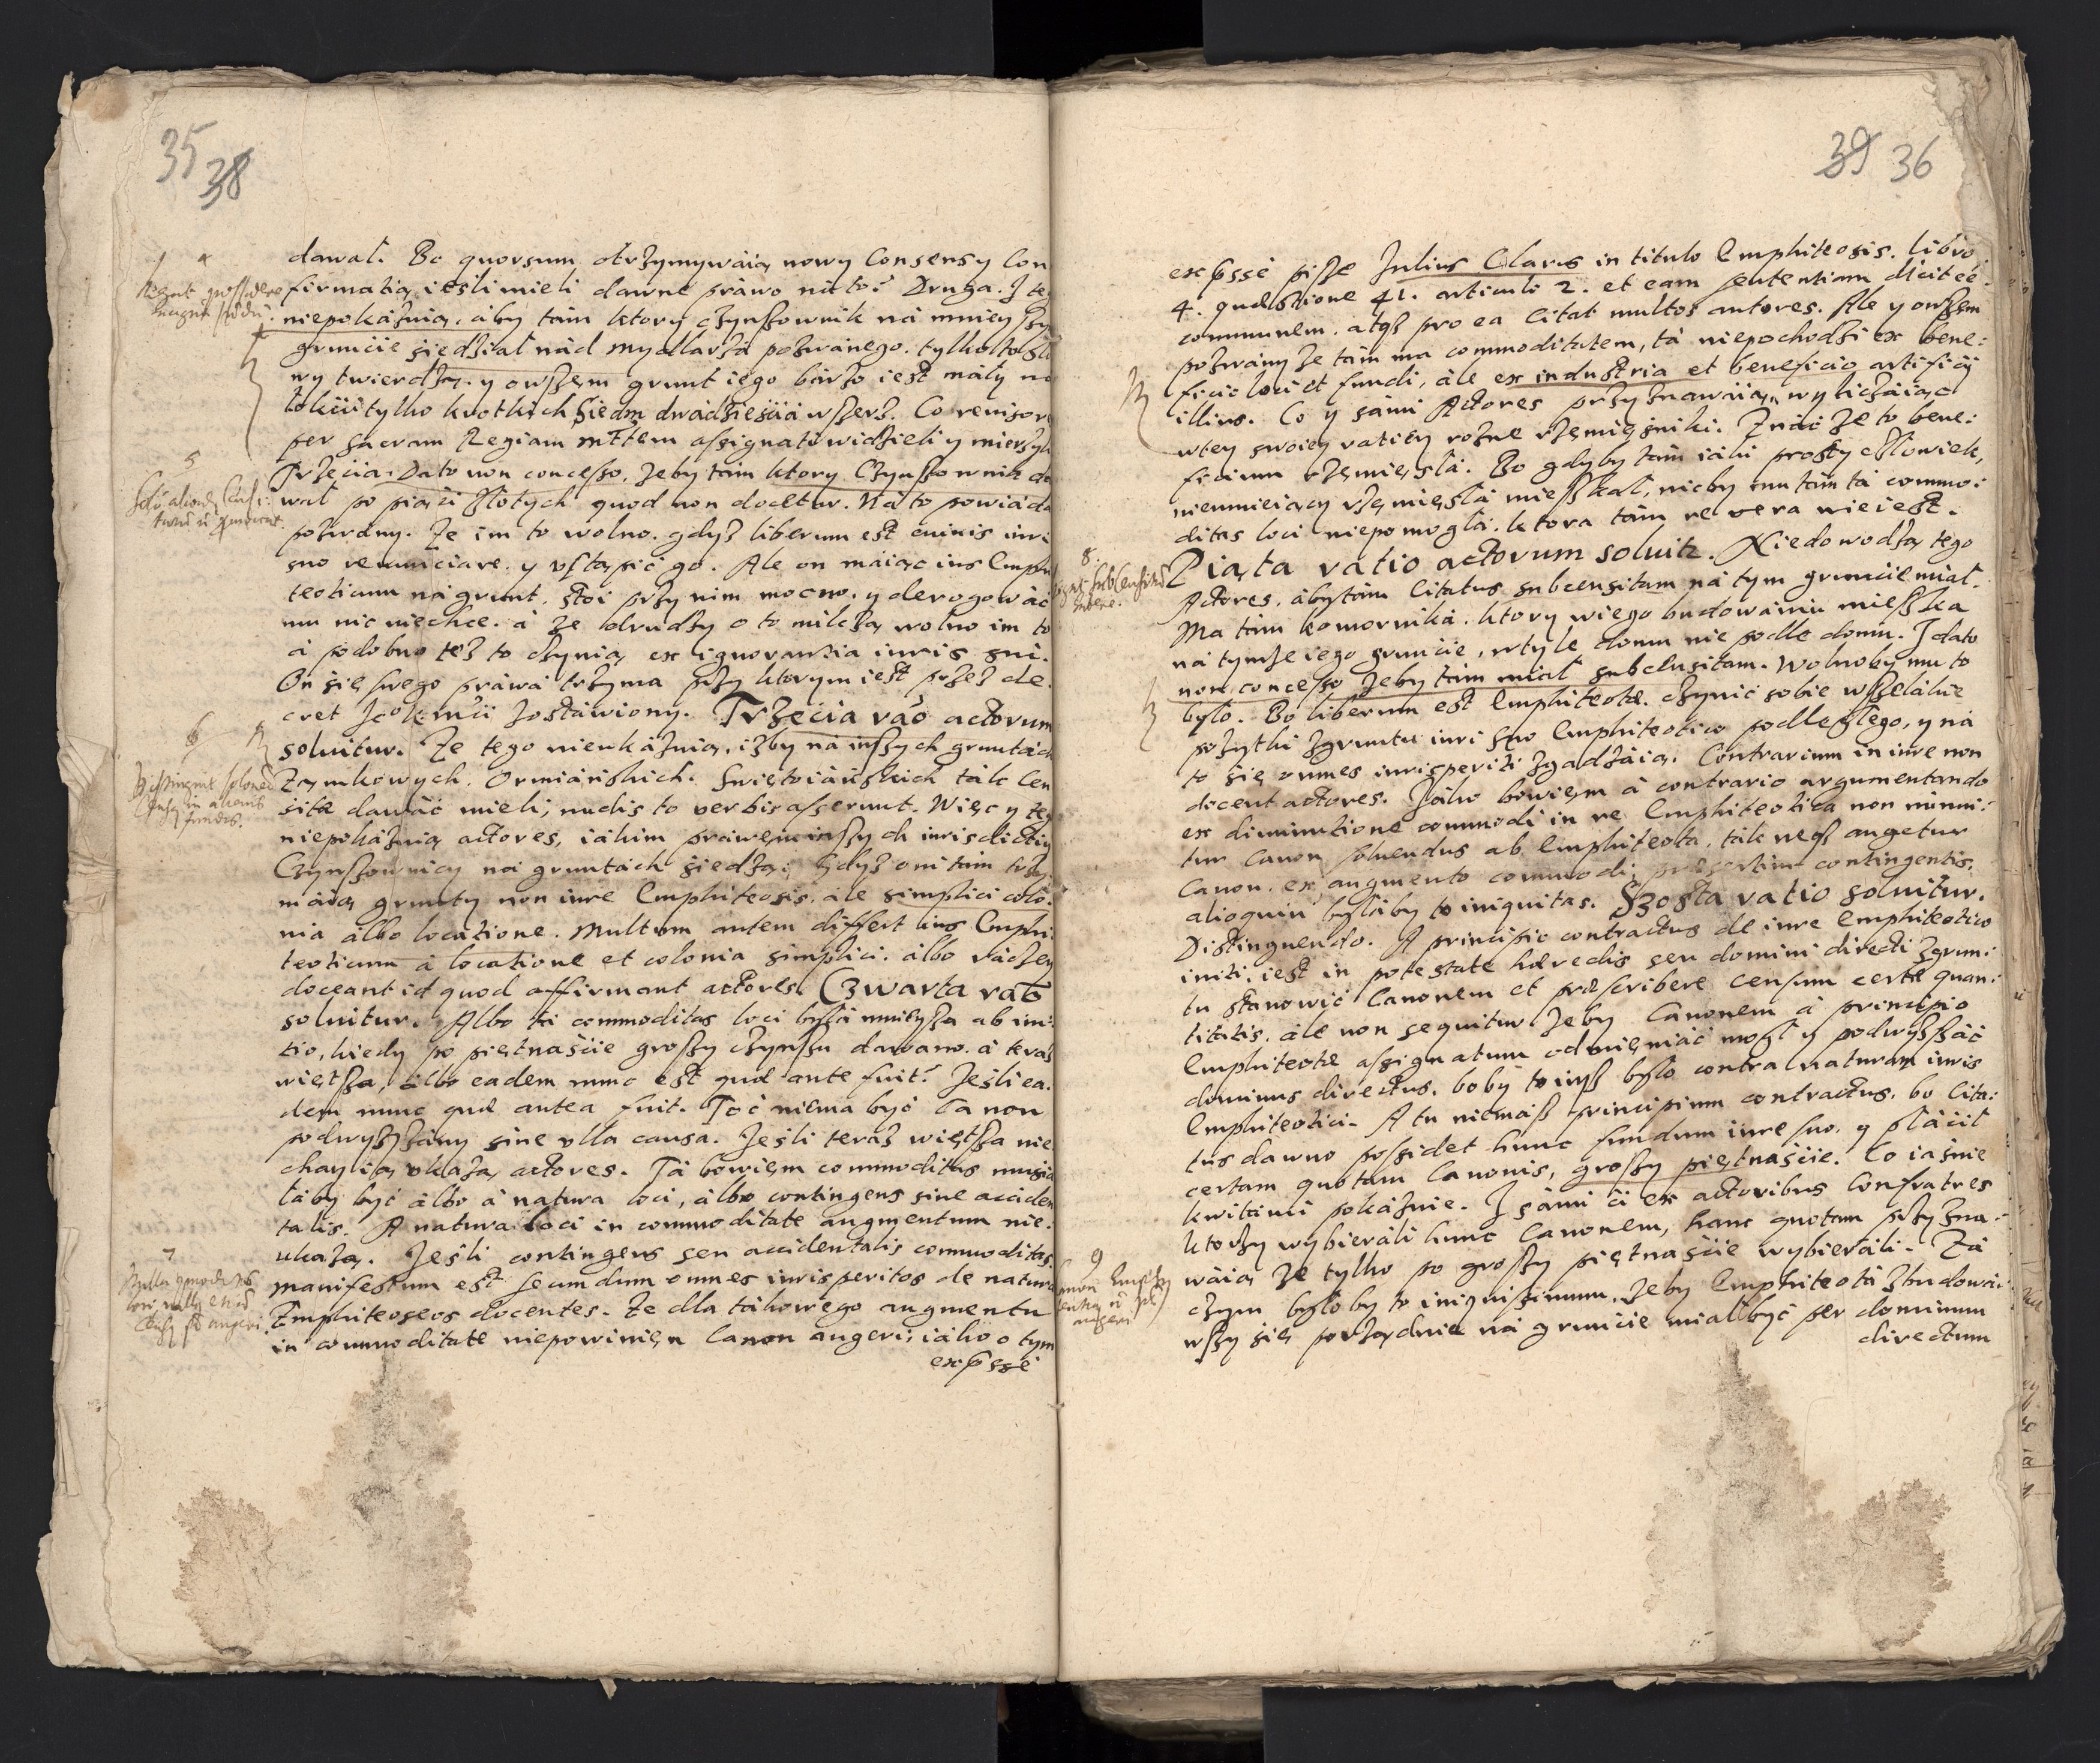 35 38
dawał. Bo quorsum otrzymywaią nowy Consens y Con
firmatią ieśli mieli dawne prawo na to? Druga. I te
niepokażuią, aby tam ktory czynszownik na mnieyszy
gruncie siedział nad mydlarza pozwanego. tylko to sło
wy twierdzą. y owszem grunt iego barzo iest mały na
łokci tylko krotkich Siedm dwadziescia wszerz. Co revisore
per sacram Regiam mttem assignati widzieli y mierzyli
Trzecia. Dato non concesso, żeby tam ktory Czynszownik da
wał po piąci złotych quod non docetur. Na to powiada
pozwany. Że im to wolno. gdyż liberum est cuivis iuri
suo renunciare, y vstąpić go. Ale on maiąc ius Emphi
teoticum na grunt, stoi przy nim mocno, y derogować
mu nic niechce. a że drudzy o to milczą, wolno im to
a podobno też to czynią, ex ignorantia iuris sui.
On się swego prawa trzyma przy ktorym iest przez de
cret Jeo Kmci zostawiony. Trzecia rao actorum
soluitur. Że tego nieukażuią, iżby na inszych gruntach
Zamkowych. Ormiańskich. Swiętoiańskich tak Cen
site dawać mieli, nudis to verbis asserunt. Więc y te
niepokażuią actores, iakim prawem inszych iurisdictiy
Czynszownicy na gruntach siedzą; Gdyż oni tam trzy
maią grunty non iure Emphiteosis, ale simplici colo:
nia albo locatione. Multum autem differt ius Emphi
teoticum a locatione et colonia simplici. albo raczey
doceant id quod affirmant actores. Czwarta rao
soluitur. Albo ta commoditas loci była mnieysza ab ini:
tio, kiedy po piętnaście groszy czynszu dawano. a teraz
większa, albo eadem nunc est quæ ante fuit? Jeśli ea:
dem nunc quæ antea fuit. Toć niema być Canon
podwyższany sine vlla causa. Jeśli teraz większa nie
chay ią vkażą actores. Ta bowiem commoditas musia
łaby być albo a natura loci, albo contingens sine acciden
talis. A natura loci in commoditate augmentum nie
ukażą. Jeśli contingens seu accidentalis commoditas
manifestum est secundum omnes iurisperitos de natura
Emphiteoseos docentes. Że dla takowego augmentu
in commoditate niepowinien Canon augeri; iako o tym
expsse
4
5
6
7
39 36
expsse pisze Julius Clarus in titulo Emphiteosis. libro
4. quæstione 41. articuli 2. et eam sententiam dicit eē
communem. atqз pro ea citat multos autores. Ale y owszem
pozwany że tam ma commoditatem, ta niepochodzi ex bene:
ficio loci et fundi, ale ex industria et beneficio artificij
illius. Co y sami Actores przyznawaią, wyliczaiąc
wtey swoiey ratiey rożne rzemięsniki. Znać że to bene:
ficium rzemięsła. Bo gdyby tam iaki prosty człowiek,
nieumieiący rzemięsła mieszkał, nicby mu tam ta commo:
ditas loci niepomogła. ktora tam re vera nie iest.
Piąta ratio actorum soluitr. Niedowodzą tego
Actores, aby tam Citatus subcensitam na tym gruncie miał.
Ma tam komornika. ktory w iego budowaniu mieszka
na tymże iego gruncie, w tyle domu nie podle domu. I dato
non concesso żeby tam miał subcensitam. Wolnoby mu to
było. Bo liberum est Emphiteotæ. czynić sobie wszelakie
pożytki z gruntu iuri suo Emphiteotico podległego, y na
to się omnes iurisperiti zgadzaią. Contrarium in iure non
docent actores. Jako bowiem a contrario argumentando
ex diminutione commodi in re Emphiteotica non minui:
tur Canon soluendus ab Emphiteota, tak neqз augetur
Canon. ex augmento commodi, præsertim contingentis,
alioquin byłaby to iniquitas. Szosta ratio soluitur.
Distinguendo. A principio contractus de iure Emphiteotico
initi, iest in potestate hæredis seu domini directi z grun:
tu stanowić Canonem et præscribere censum certæ quan:
titatis, ale non sequitur żeby Canonem a principio
Emphiteotæ assignatum odmięniać mogł y podwyższać
dominus directus, boby to iuż było contra naturam iuris
Emphiteotici. A tu niemasz principium contractus, bo Cita:
tus dawno possidet hunc fundum iure suo, y płacił
certam quotam Canonis, groszy piętnaście. Co iaśnie
kwitami pokażuie. I sami ci ex actoribus Confratres
ktorzy wybierali hunc Canonem, hanc quotam przyzna:
waią że tylko po groszy piętnaście wybierali. Za
czym byłoby to iniquissimum, żeby Emphiteota zbudowa:
wszy się porządnie na gruncie miał być per dominum
directum
8.
9